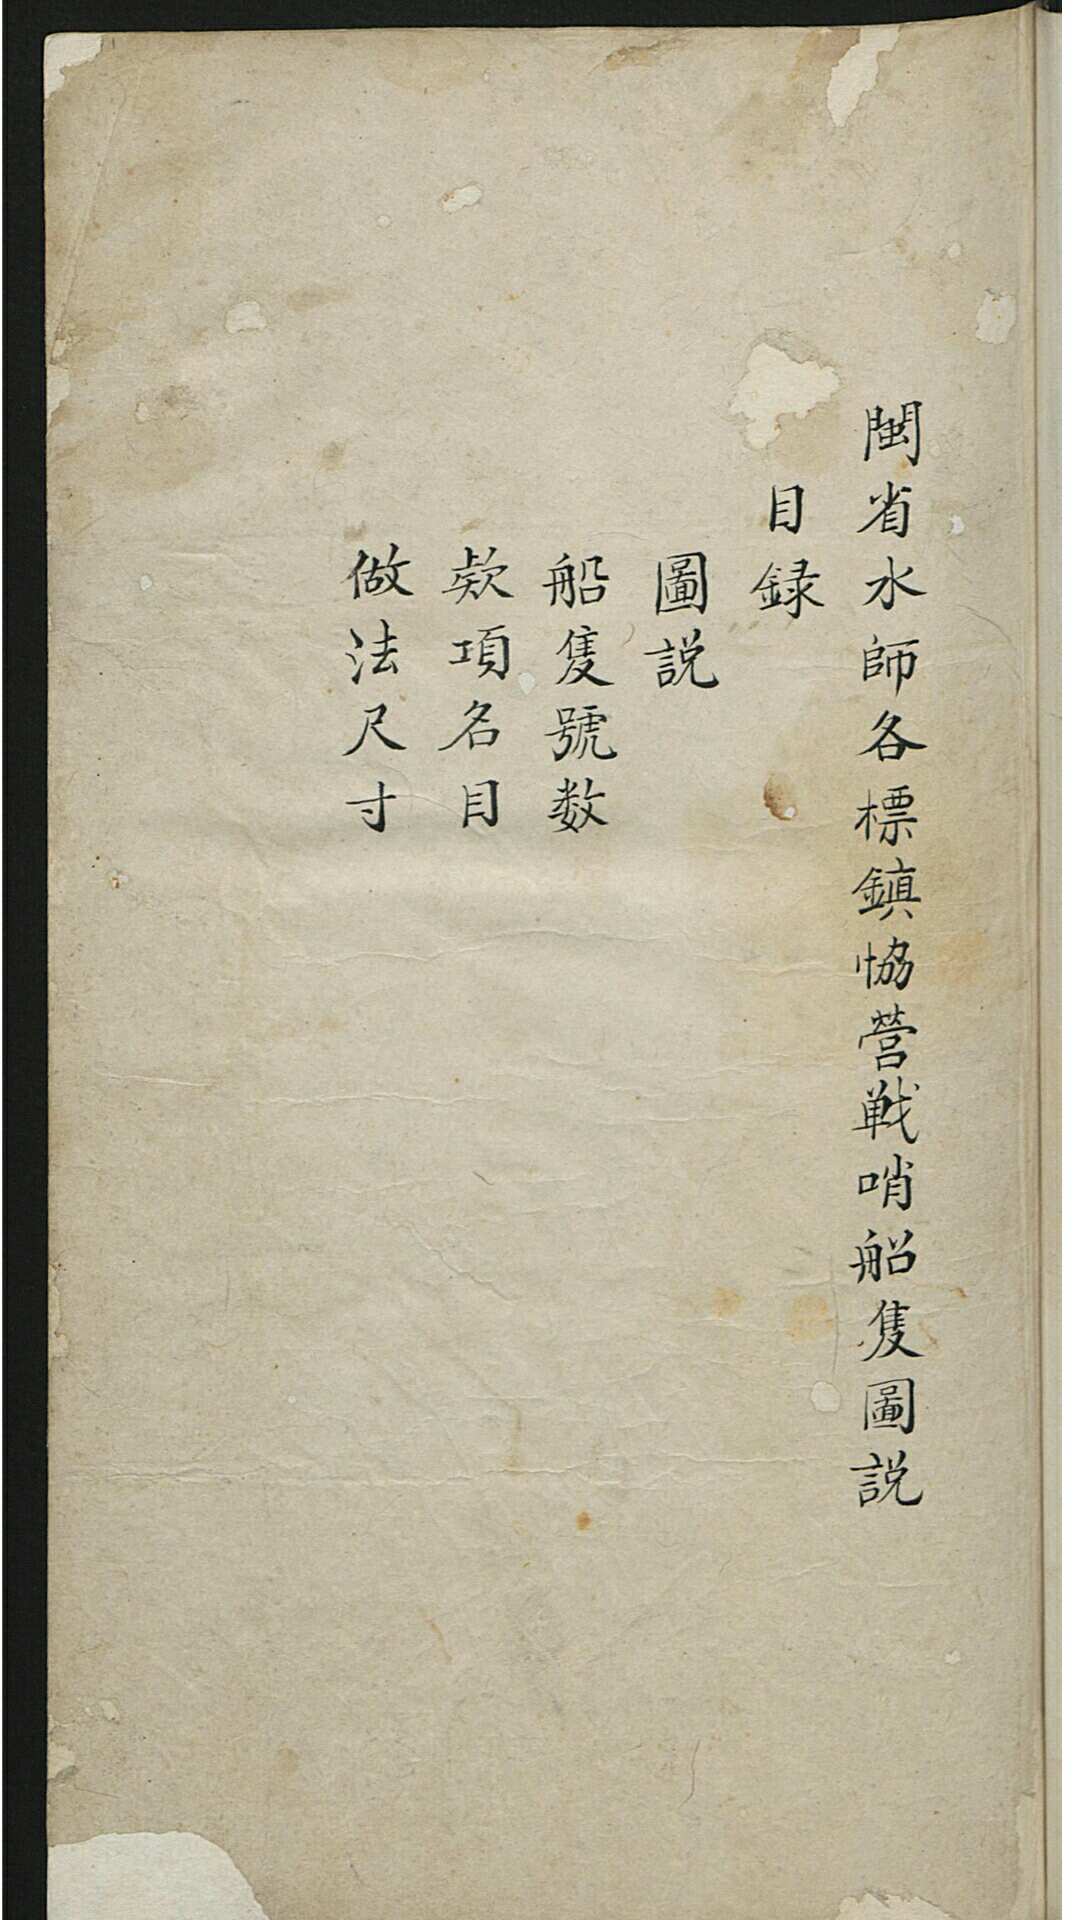 閩省水師各標鎮恊營戰哨船隻圖説
目録
圖説
船隻號数
欵項名目
做法尺寸